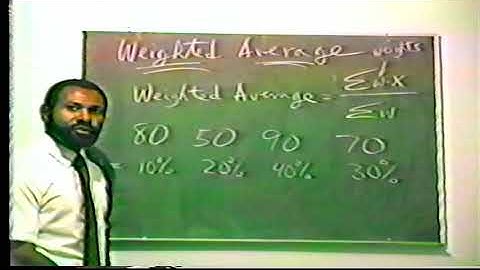 Weighted Average weights
Weighted Average = Σw·x
Σw
80 50 90 70
= 10% 20% 40% 30%